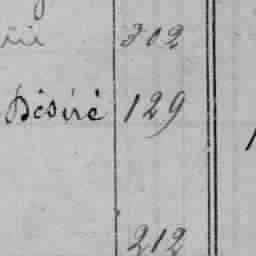 302
Désiré 129
212